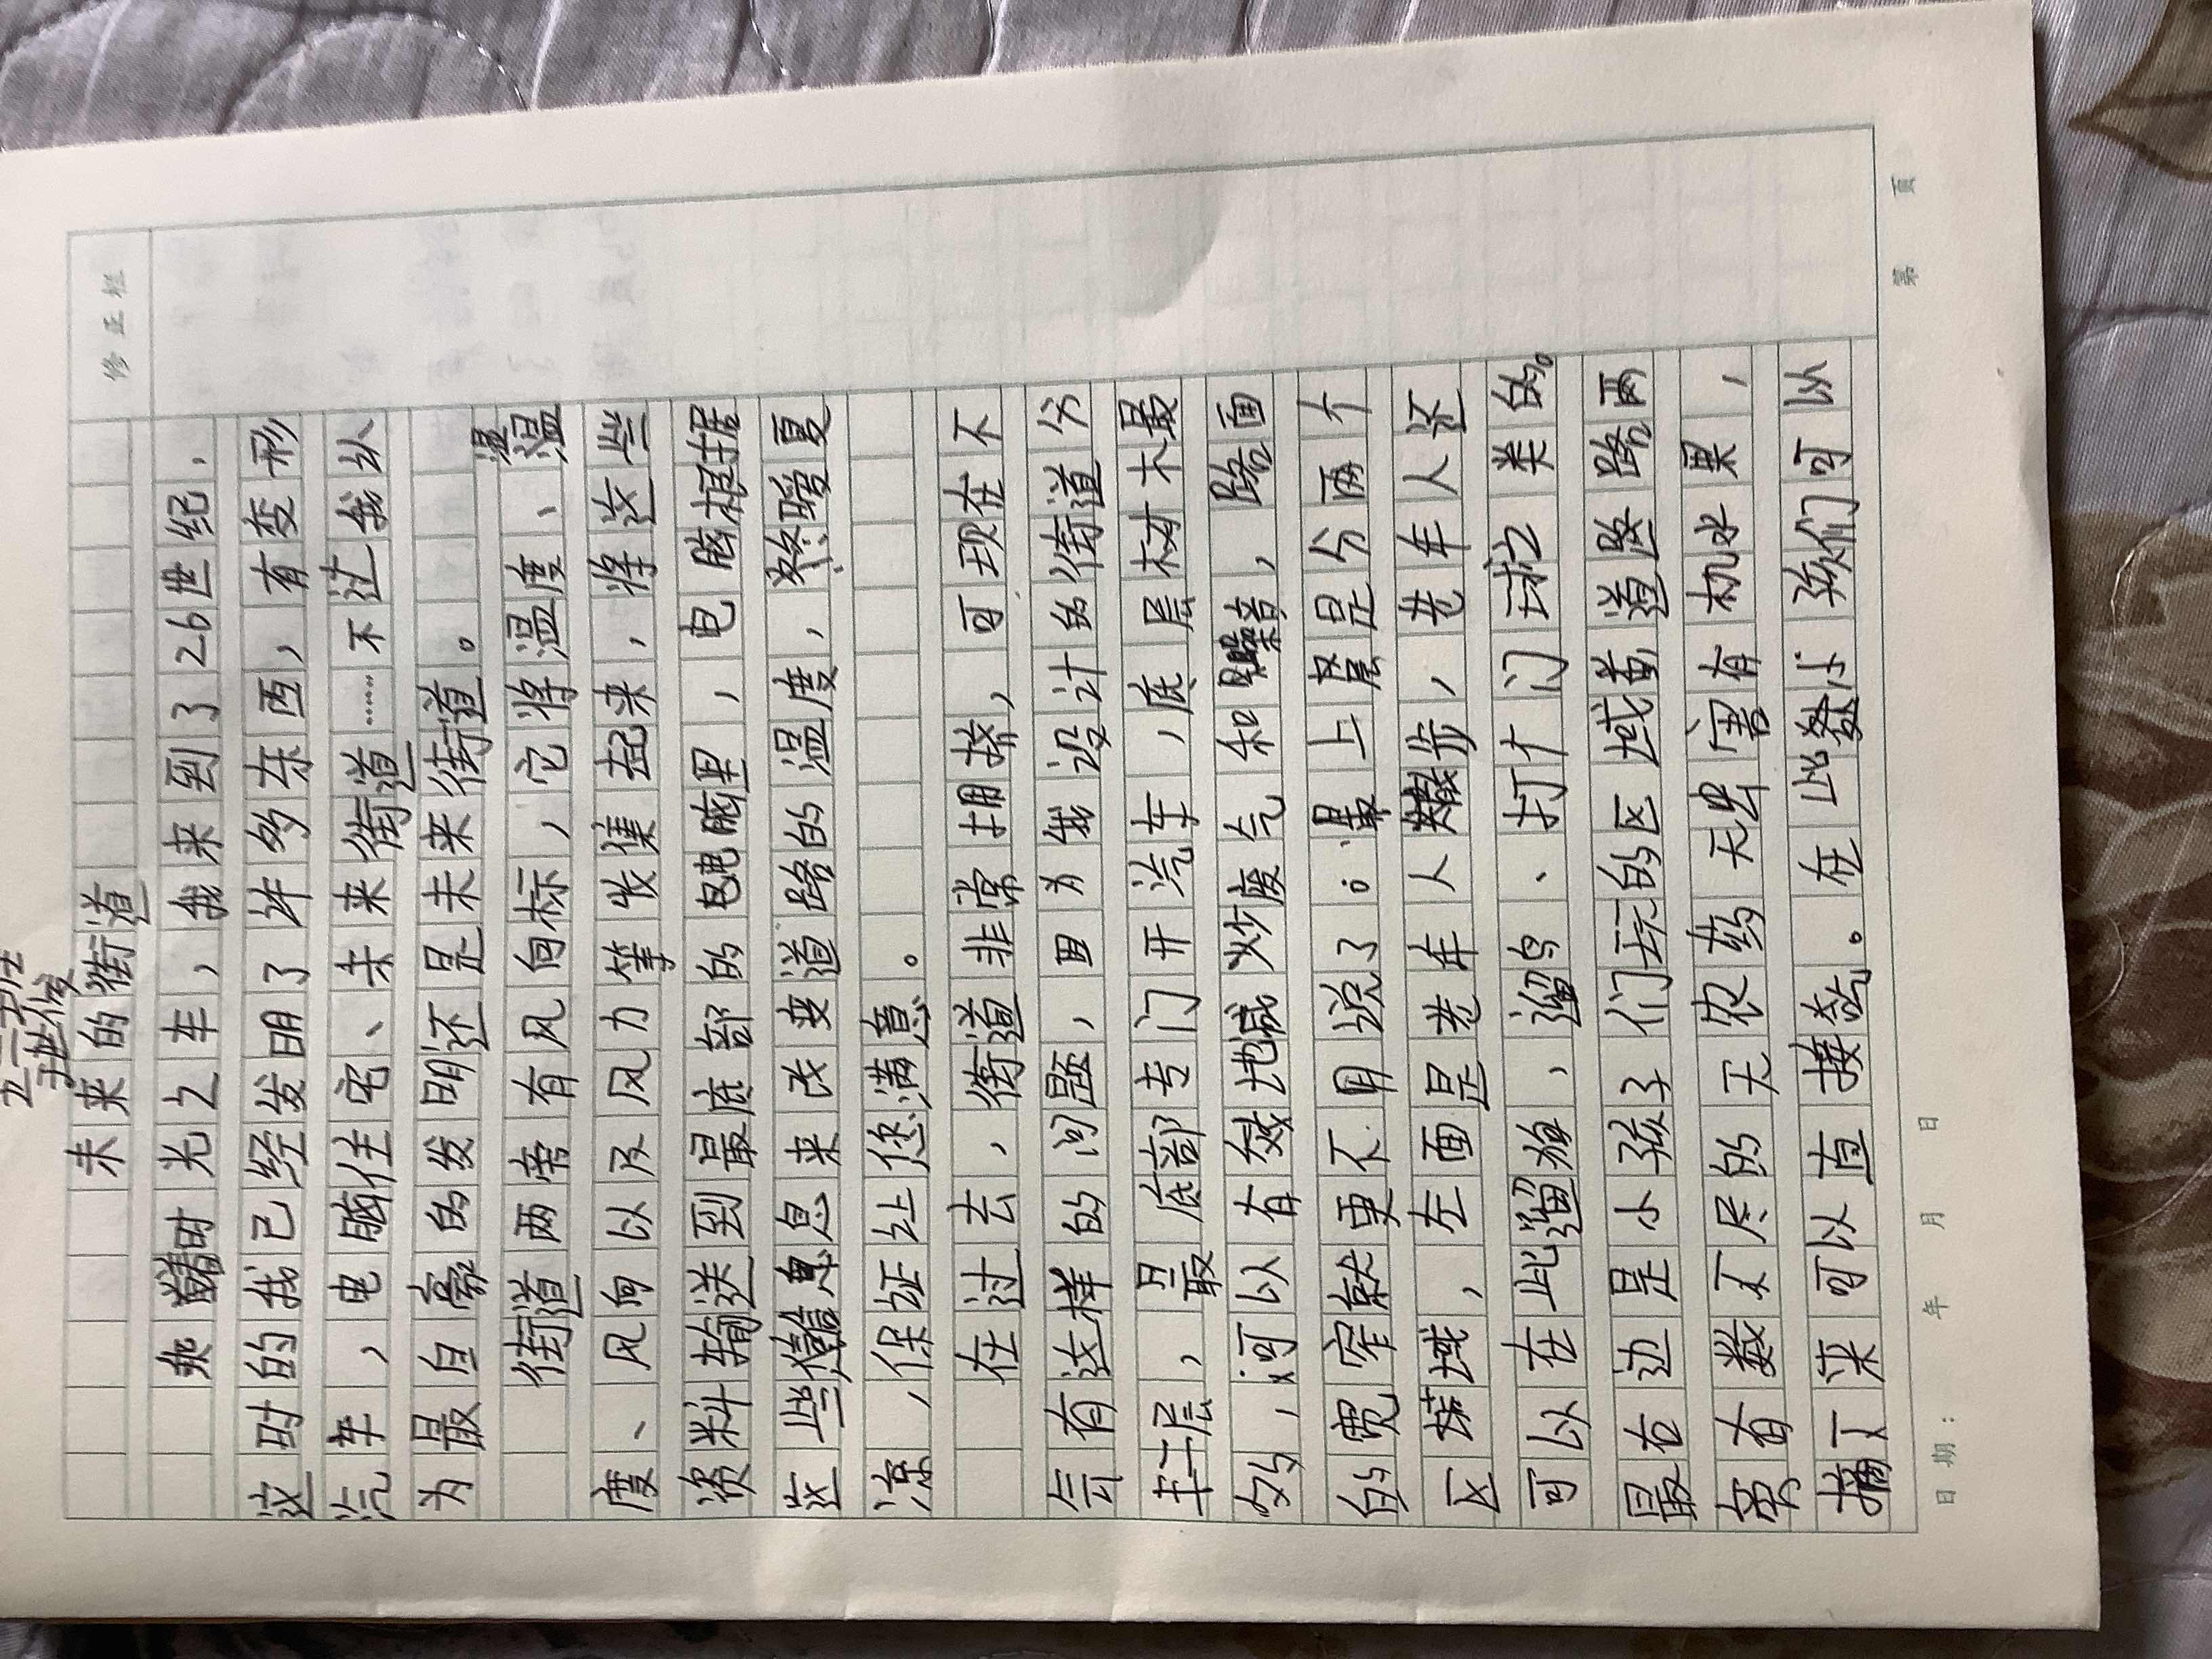 五二班
未来的街道
修正栏
乘着时光之车，我来到了26世纪．
这时的我已经发明了许多东西，有变形
汽车，电脑住宅、未来街道……不过我认
为最自豪的发明还是未来街道。
街道两旁有风向标，它将温度、湿
度、风向以及风力等收集起来，将这些
资料输送到最底部的电脑里，电脑根据
这些信息来改变道路的温度，冬暖夏
凉，保证让您满意。
在过去，街道非常拥挤，可现在不
会有这样的问题，因为我设计的街道分
好几层，最底部专门开汽车，底层材木最
好，可以有效地减少废气和噪音，路面
的宽窄就更不用说了。最上层是分两个
区域，左面是老年人散步，老年人还
可以在此遛狗，遛鸟、打个门球之类的。
最右边是小孩子们玩的区域道路两
旁有数不尽的无农药无害有机水果，
摘下来可以直接吃。在此处小孩们可以
日期： 年 月 日
第 页